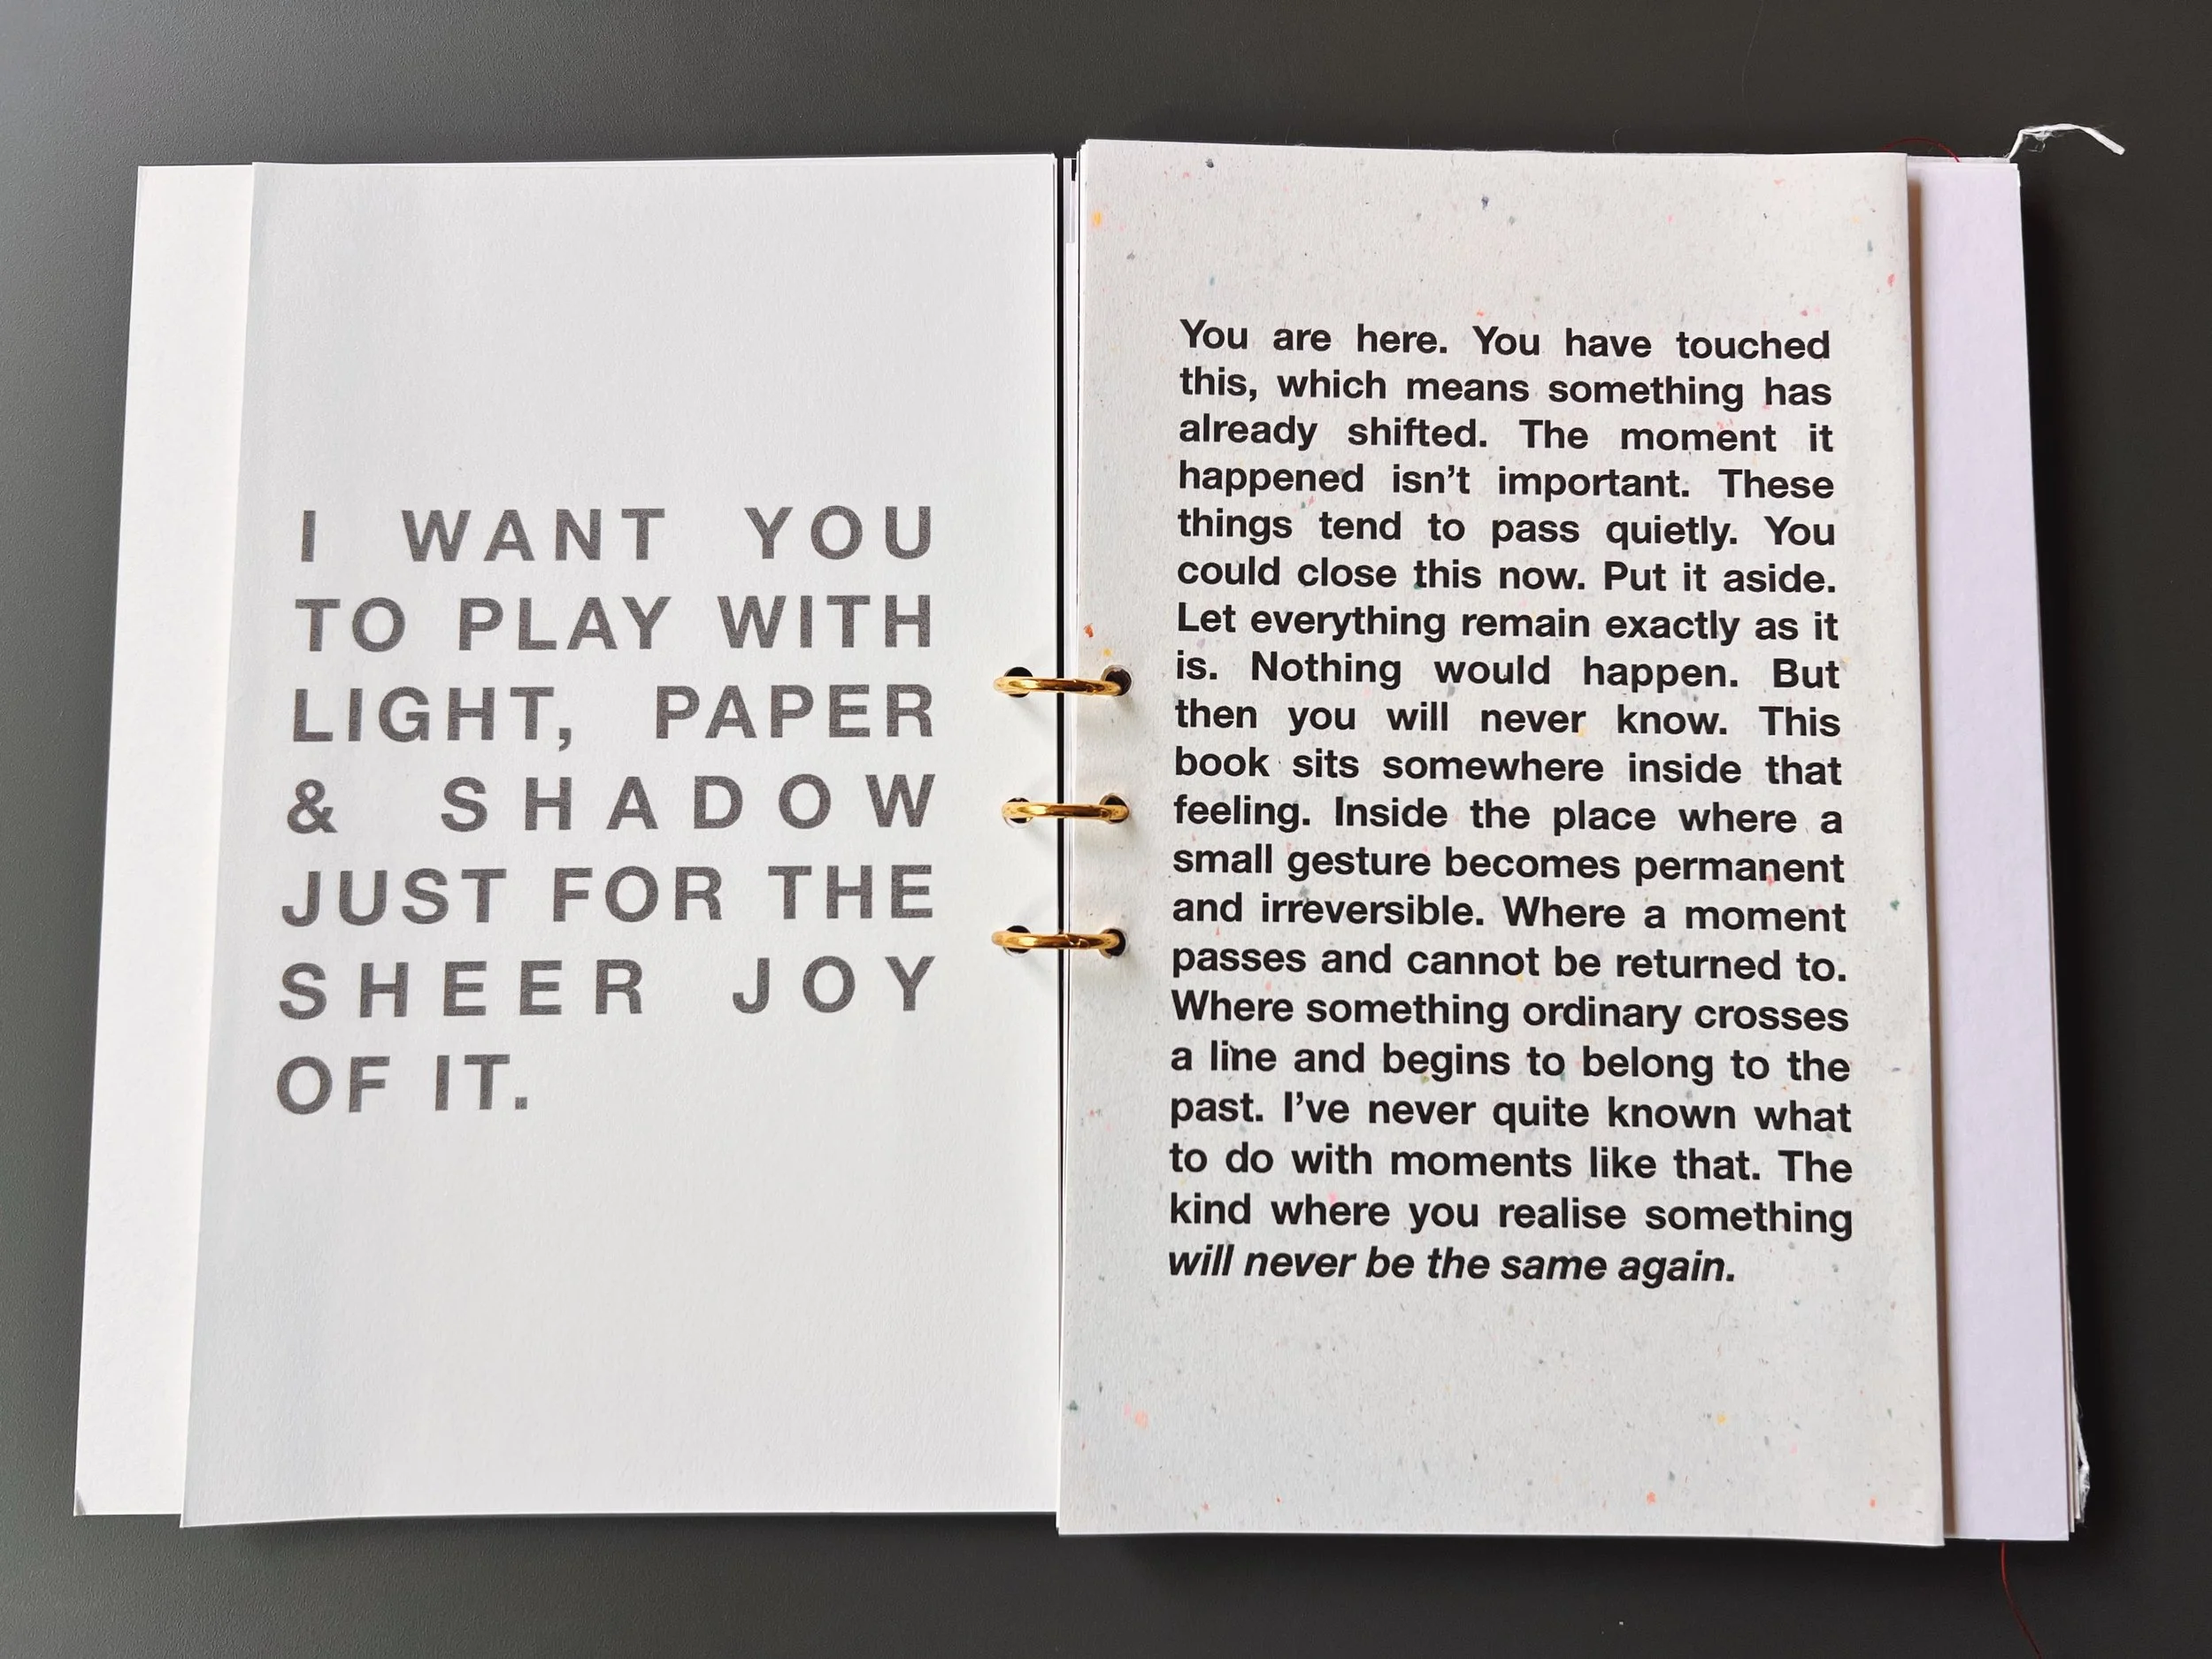 I WANT YOU
TO PLAY WITH
LIGHT, PAPER
& SHADOW
JUST FOR THE
SHEER JOY
OF IT.
You are here. You have touched
this, which means something has
already shifted. The moment it
happened isn’t important. These
things tend to pass quietly. You
could close this now. Put it aside.
Let everything remain exactly as it
is. Nothing would happen. But
then you will never know. This
book sits somewhere inside that
feeling. Inside the place where a
small gesture becomes permanent
and irreversible. Where a moment
passes and cannot be returned to.
Where something ordinary crosses
a line and begins to belong to the
past. I’ve never quite known what
to do with moments like that. The
kind where you realise something
will never be the same again.